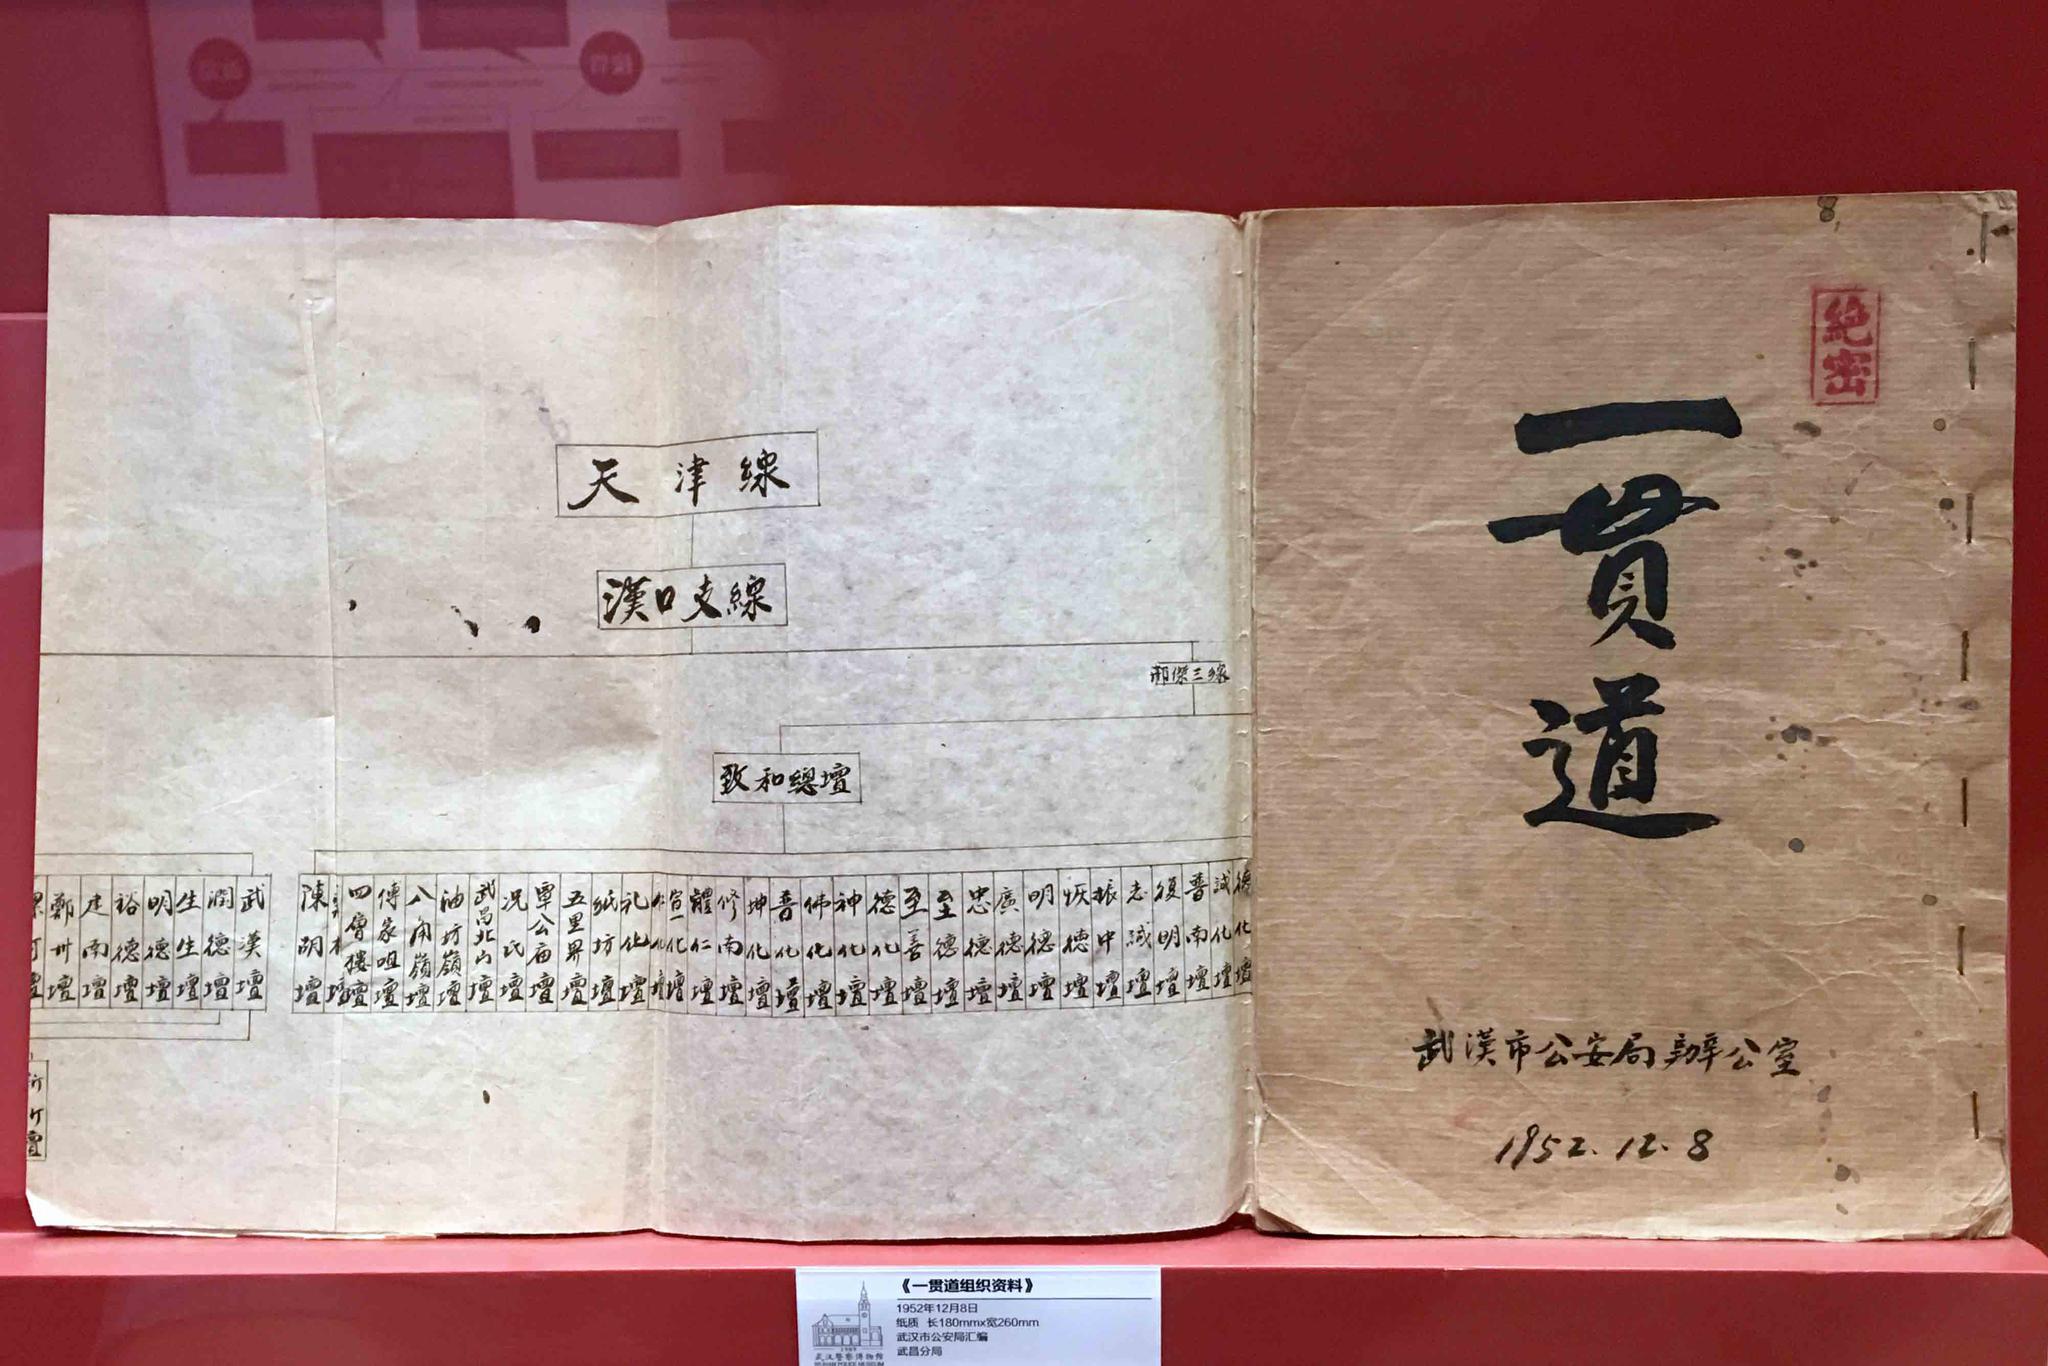 8
絶密
一貫道
武漢市公安局辦公室
1952.12.8
天津線
漢口支線
邢傑三線
致和總壇
德化壇
誠化壇
普南壇
復明壇
志誠壇
振中壇
恢德壇
明德壇
廣德壇
忠德壇
至德壇
至善壇
德化壇
神化壇
佛化壇
普化壇
坤化壇
修南壇
體仁壇
宣化壇
礼化壇
紙坊壇
五里界壇
覃公庙壇
况氏壇
武昌北山壇
油坊嶺壇
八角嶺壇
傅家咀壇
四會樓壇
陳朗壇
武漢壇
潤德壇
生生壇
明德壇
裕德壇
建南壇
鄭州壇
《一贯道组织资料》
1952年12月8日
纸质 长180mmx宽260mm
武汉市公安局汇编
武昌分局
武汉警察博物馆